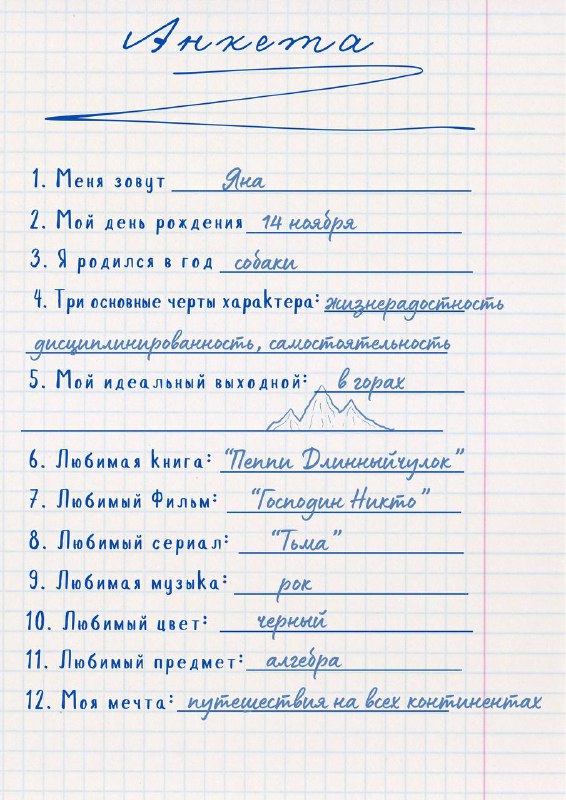 Анкета
1. Меня зовут Яна
2. Мой день рождения 14 ноября
3. Я родился в год собаки
4. Три основные черты характера: жизнерадостность
дисциплинированность, самостоятельность
5. Мой идеальный выходной: в горах
6. Любимая книга: "Пеппи Длинныйчулок"
7. Любимый Фильм: "Господин Никто"
8. Любимый сериал: "Тьма"
9. Любимая музыка: рок
10. Любимый цвет: черный
11. Любимый предмет: алгебра
12. Моя мечта: путешествия на всех континентах